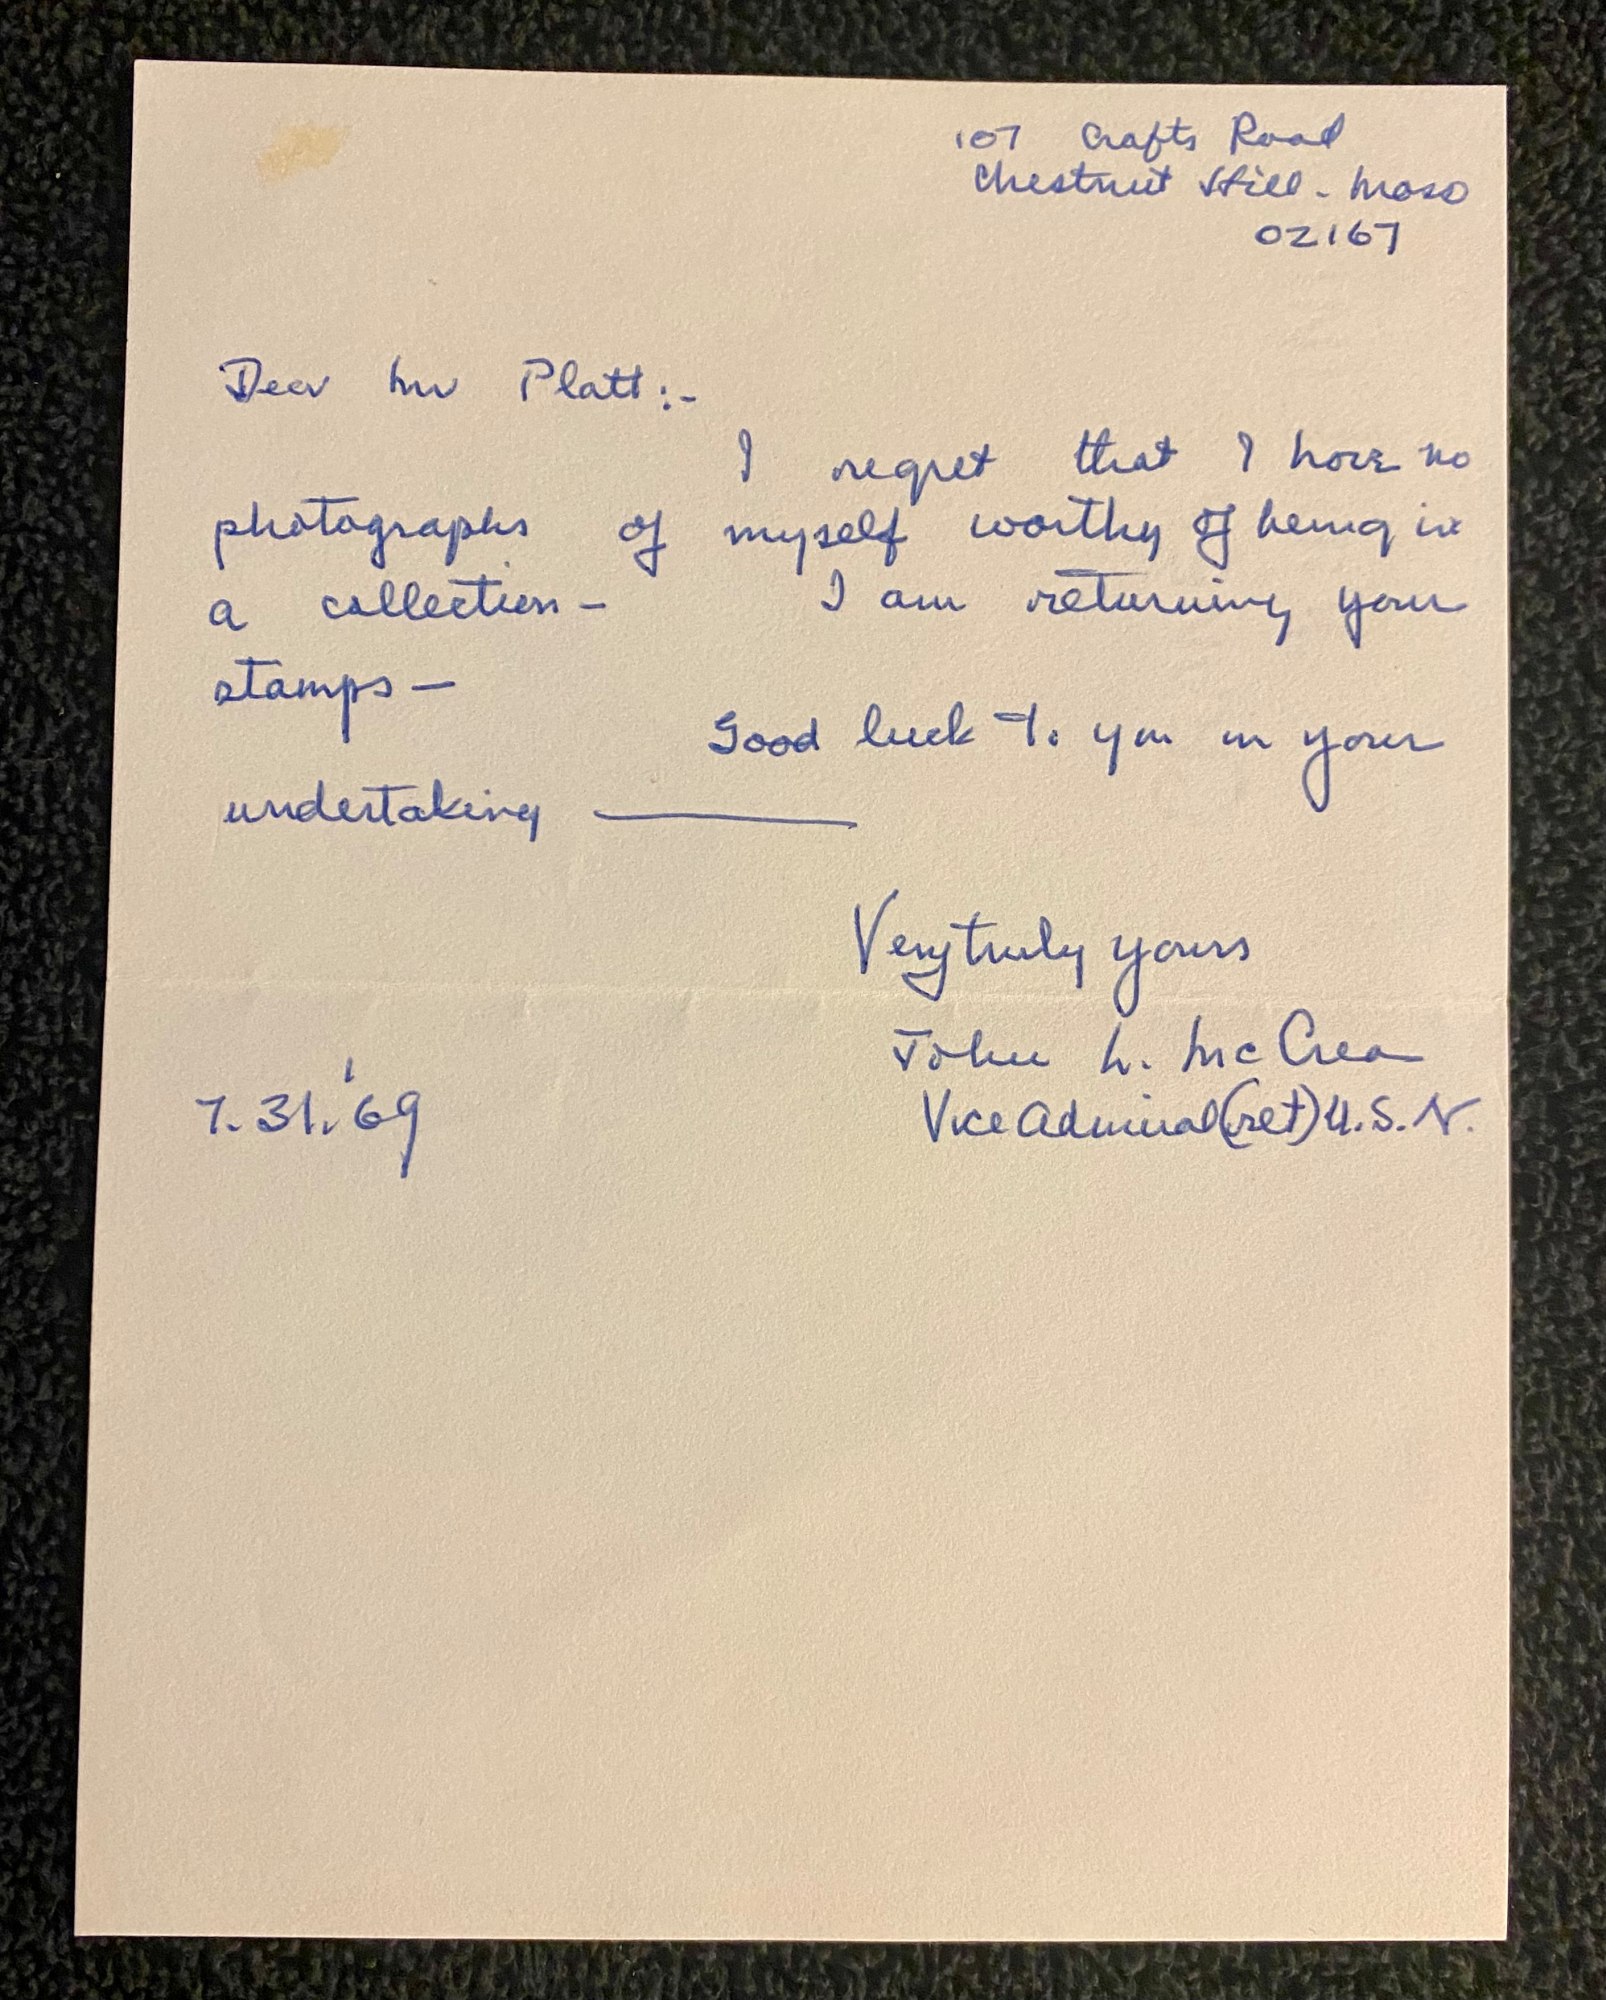 107 Crafts Road
Chestnut Hill - Mass
02167
Dear Mr Platt:-
I regret that I have no
photographs of myself worthy of being in
a collection - I am returning your
stamps -
Good luck to you in your
undertaking —
Very truly yours
John L. McCrea
Vice Admiral (ret) U.S.N.
7.31.'69